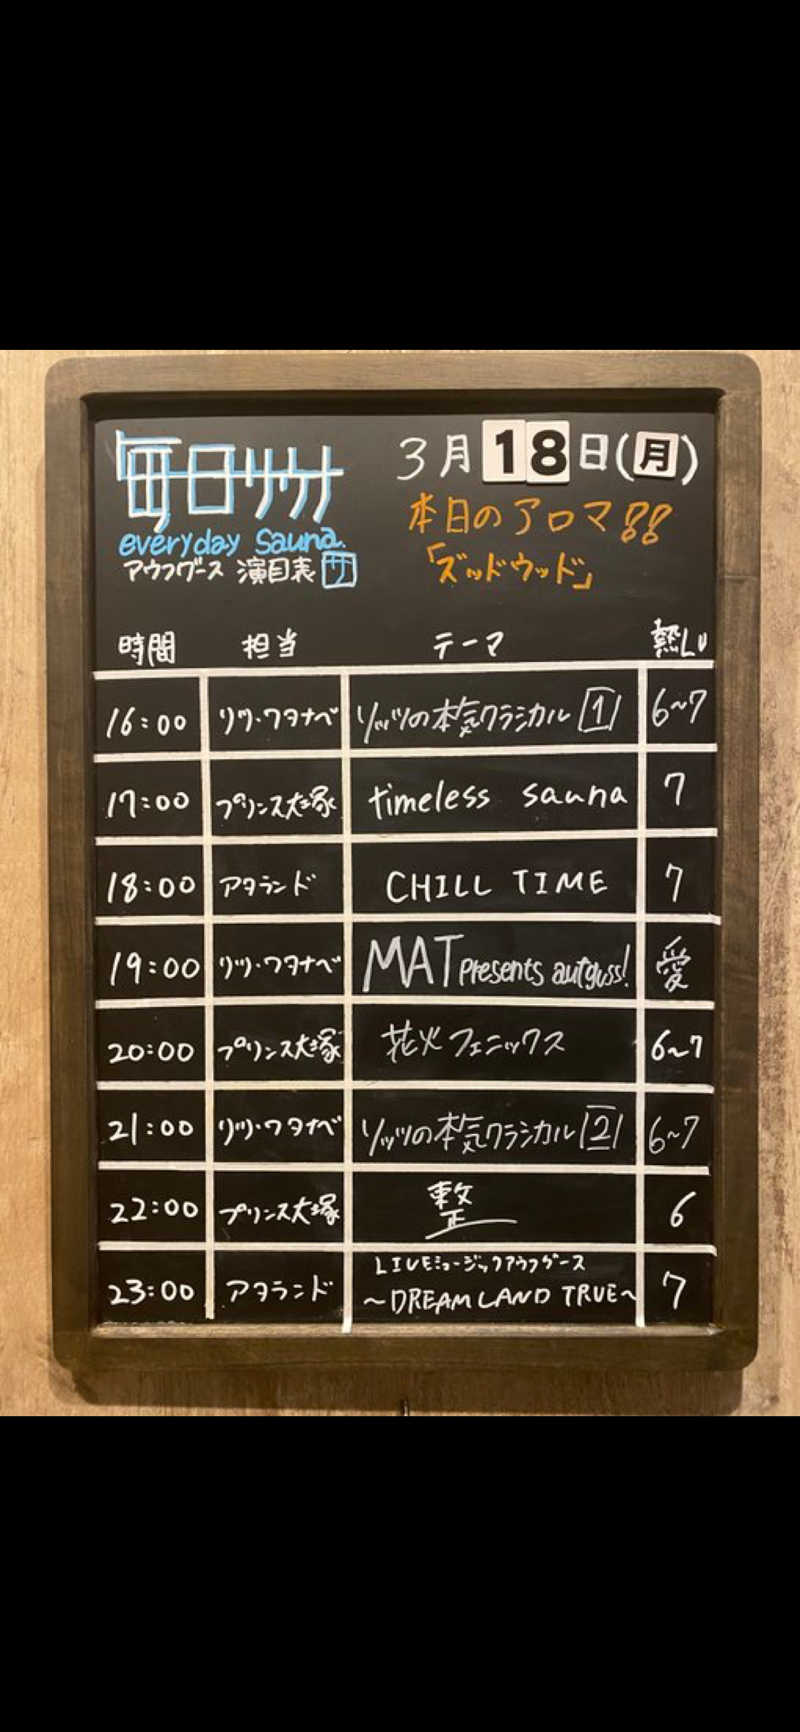 毎日サウナ
everyday Sauna.
アウフグース 演目表 サ
3月18日(月)
本日のアロマ!!
「ズッドウッド」
時間 担当 テーマ 熱Lv
16:00 リツ・ワタナベ リッツの本気クラシカル 1 6~7
17:00 プリンス大塚 timeless sauna 7
18:00 アタランド CHILL TIME 7
19:00 リツ・ワタナベ MAT presents aufguss! 愛
20:00 プリンス大塚 花火フェニックス 6~7
21:00 リツ・ワタナベ リッツの本気クラシカル 2 6~7
22:00 プリンス大塚 整 6
23:00 アタランド LIVEミュージックアウフグース
~DREAM LAND TRUE~ 7